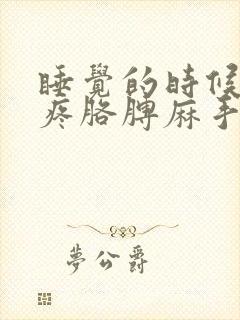 睡覺的時候
疼胳膊麻手
夢公爵